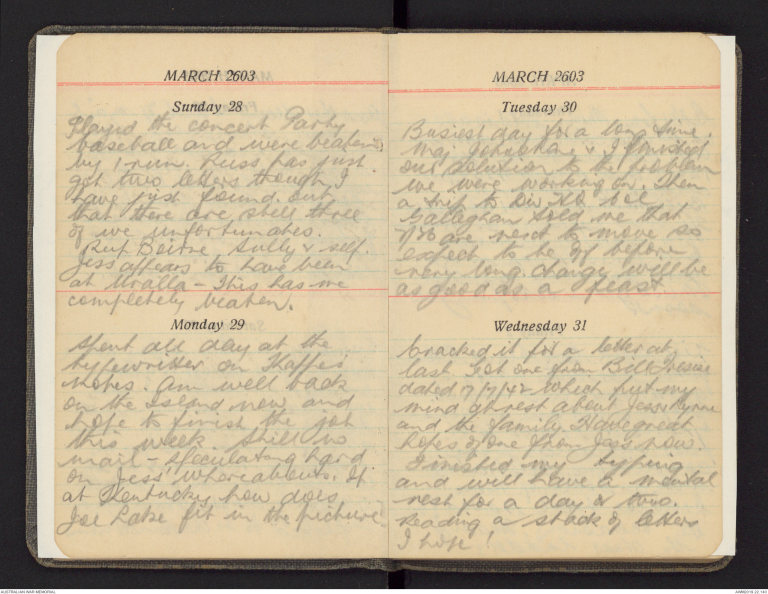 MARCH 2603
Sunday 28
Played the concert Party
baseball and were beaten
by 1 run. Russ has just
got two letters though I
have just found out
that there are still three
of we unfortunates.
Rup Beirne Sully & self.
Jess appears to have been
at Uralla - This has me
completely beaten.
Monday 29
Spent all day at the
typewriter on
notes. Am well back
on the island now and
hope to finish the job
this week. Still no
mail - speculating hard
on Jess' whereabouts. If
at Kentucky how does
Joe Lake fit in the picture
MARCH 2603
Tuesday 30
Busiest day for a long time.
Maj Johnston & I finished
our solution to the problem
we were working on. Then
a trip to Div HQ Col
Galleghan told me that
are next to move so
expect to be off before
very long. Change will be
as good as a feast
Wednesday 31
Cracked it for a letter at
last. Got one from Bill
dated 17/7/42 which put my
mind at rest about Jess
and the family. Have great
hopes of one from Jess now
Finished my typing
and will have a mental
rest for a day or two.
Reading a stack of letters
I hope!
AUSTRALIAN WAR MEMORIAL